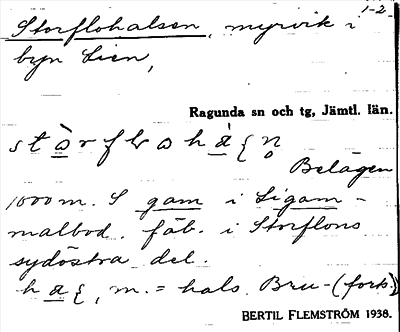 1-2
Storflohalsen, myrvik i
byn Lien,
Ragunda sn och tg, Jämtl. län.
Belägen
1000 m. S gam i Ligam-
malbod. fäb. i Storflons
sydöstra del.
m. = hals. Bru-(forts.)
BERTIL FLEMSTRÖM 1938.